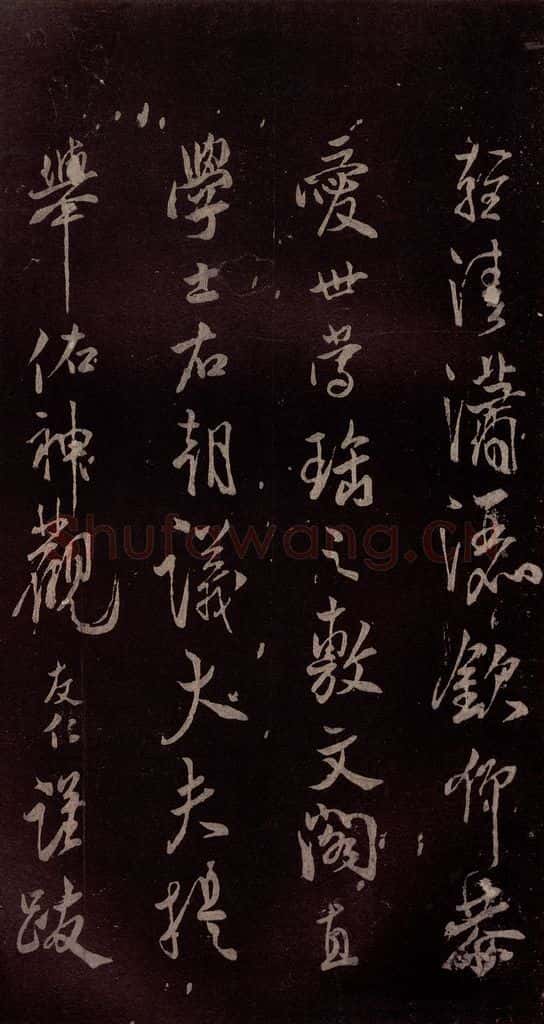 輕清瀟灑欽仰恭
愛世當珤之敷文閣直
學士右朝議大夫提
舉佑神觀友仁謹跋
Shufawang.CN